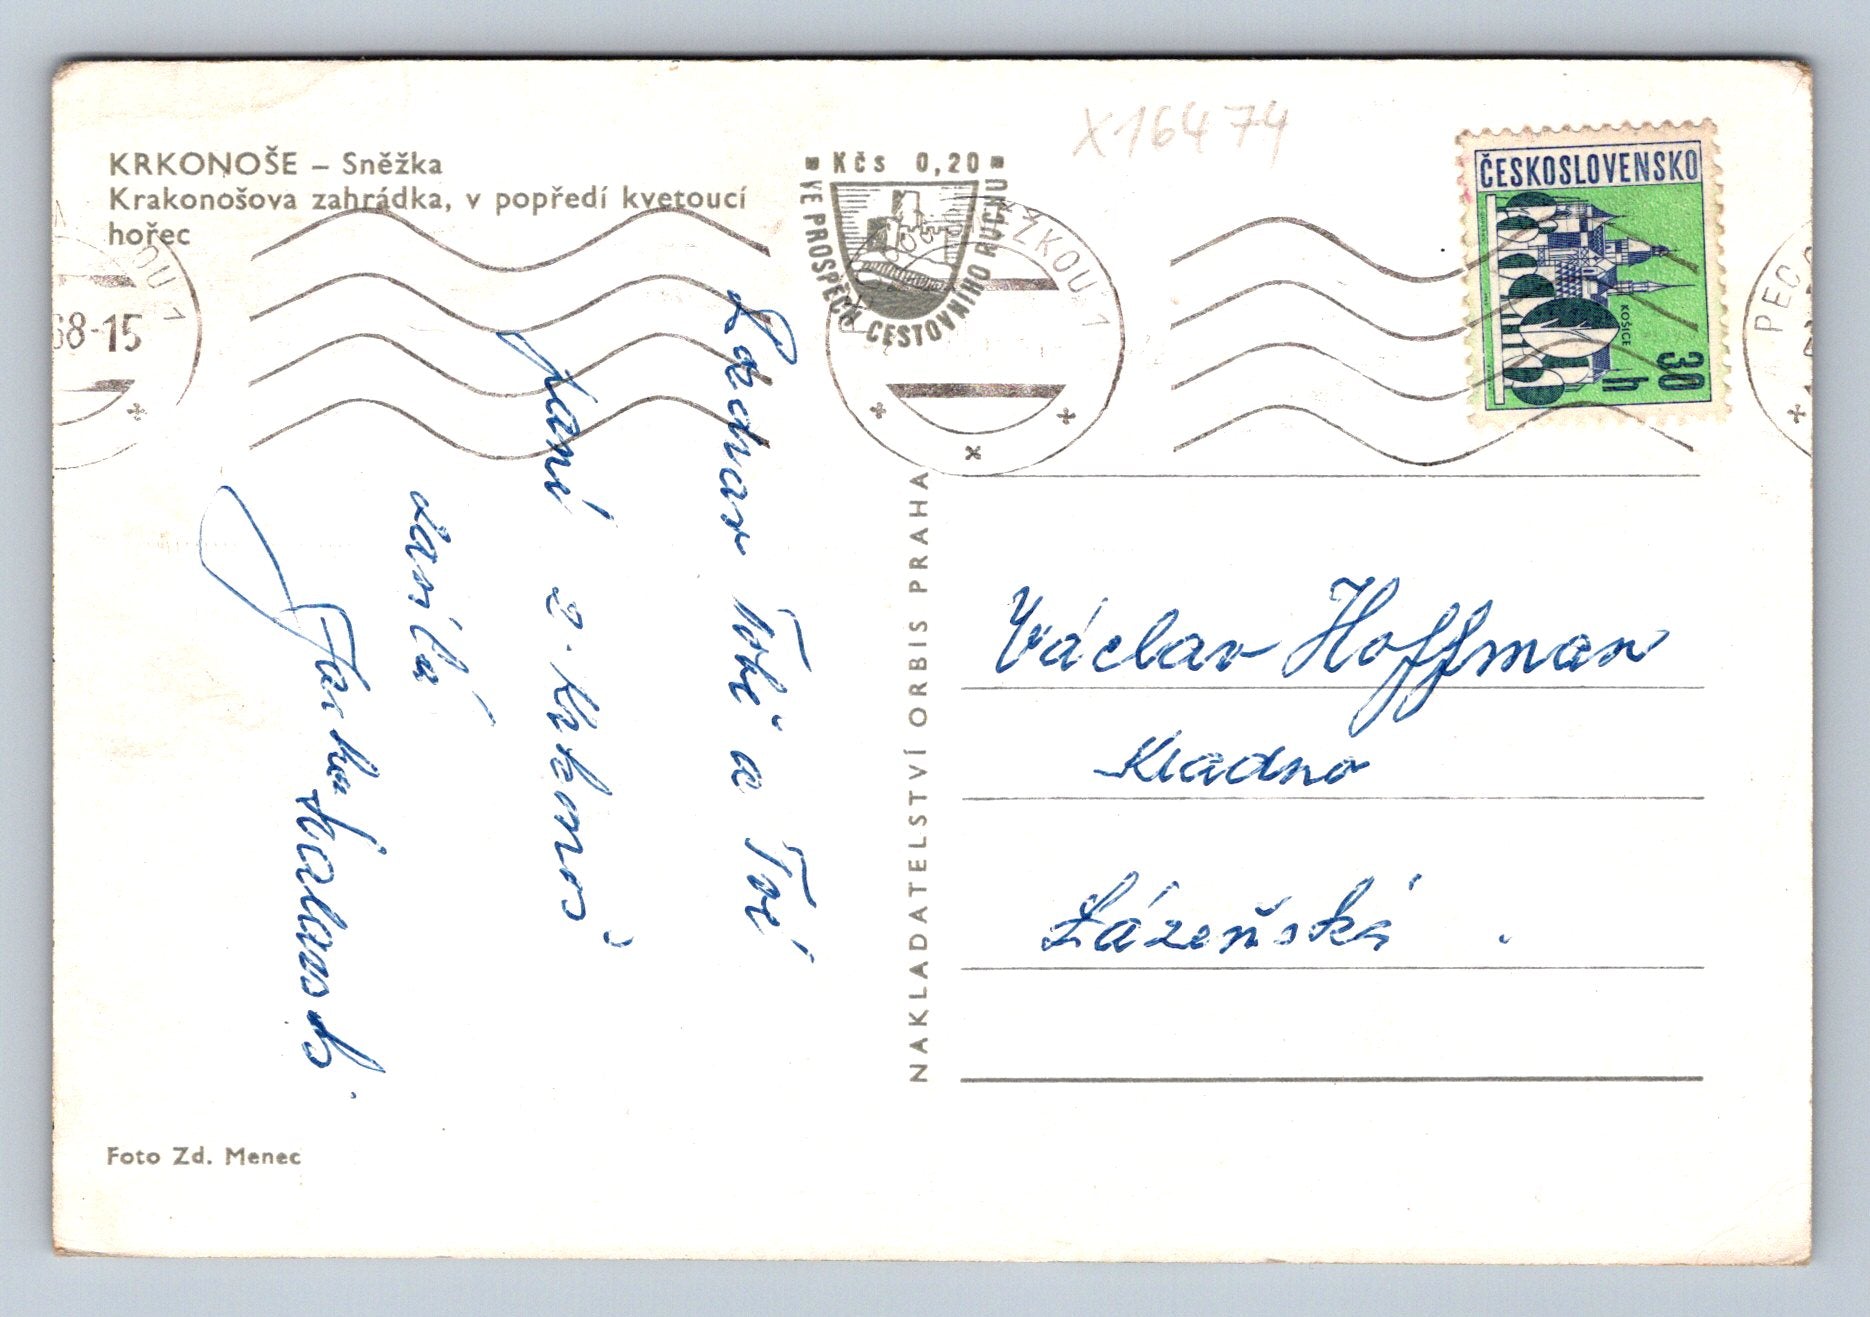 KRKONOŠE – Sněžka
Krakonošova zahrádka, v popředí kvetoucí
hořec
Kčs 0,20
VE PROSPĚCH CESTOVNÍHO RUCHU
X16474
ČESKOSLOVENSKO
KOŠICE
30
h
68-15
OU 1
ĚŽKOU 1
PEC
Tobě a Tvé
paní z
zasílá
NAKLADATELSTVÍ ORBIS PRAHA
Václav Hoffman
Kladno
Lázeňská
Foto Zd. Menec